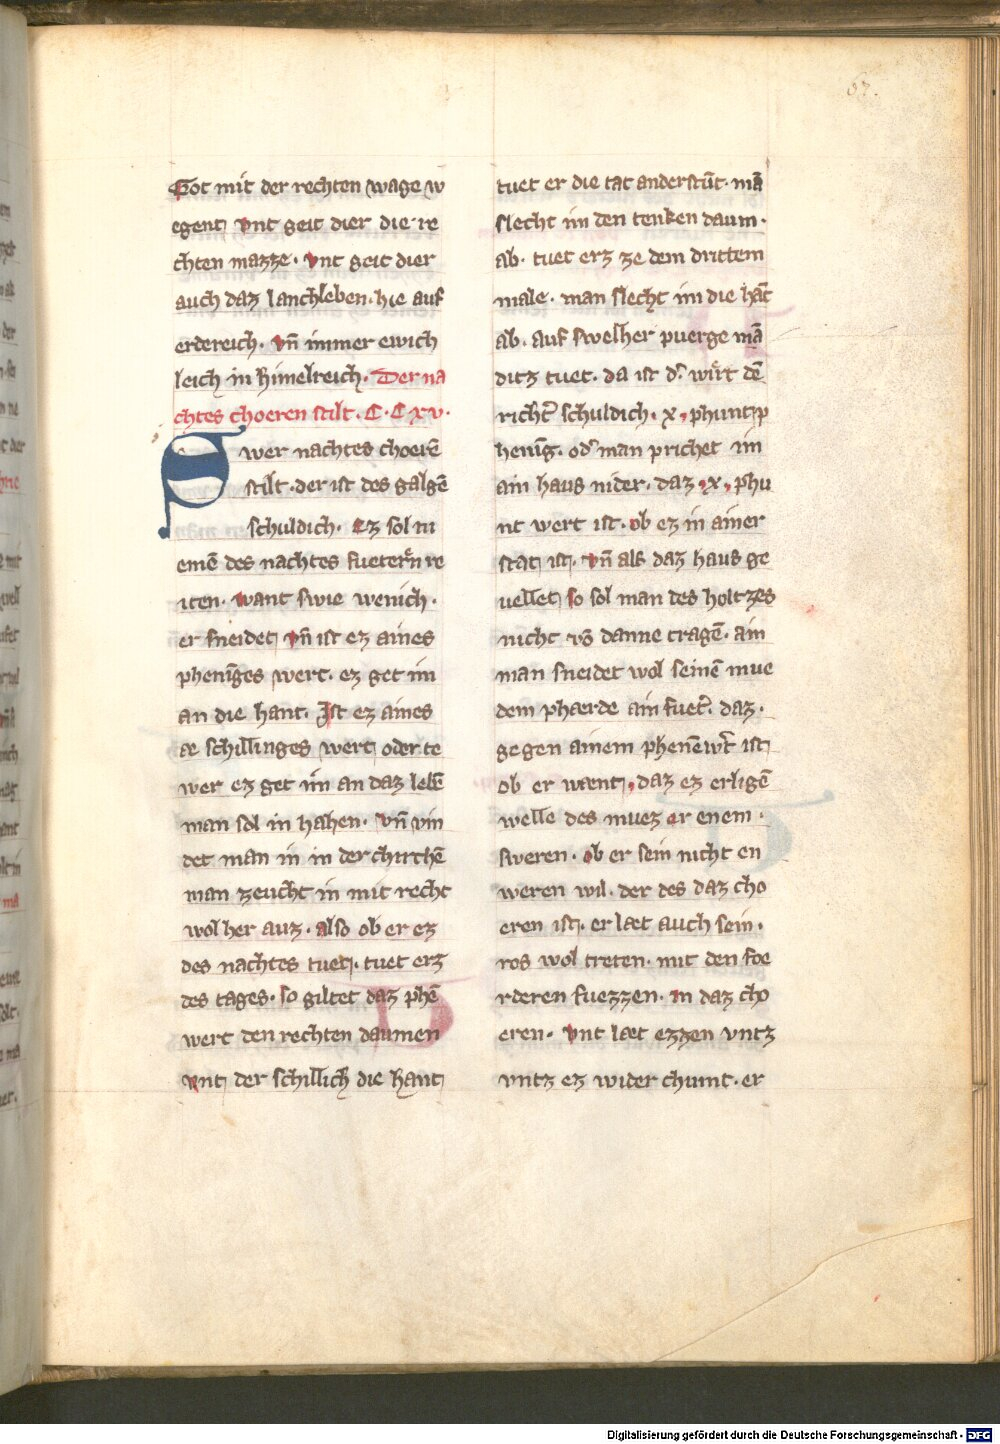 67.
Got mit der rechten wage w
egent vnt geit dier die re
chten mazze · vnt geit dier
auch daz lanchleben · hie auf
erdereich · vn̄ immer ewich
leich in himelreich · Der na
chtes choeren stilt · C · C xv ·
Swer nachtes choerē
stilt · der ist des galgē
schuldich · Ez sol ni
emē des nachtes fueterñ re
iten · want swie wenich ·
er sneidet vn̄ ist ez aines
phenīges wert · ez get im
an die hant · Ist ez aines
æ schillinges wert oder te
wer ez get im an daz lebē
man sol in hahen · vn̄ vin
det man in in der chirchē
man zeucht in mit recht
wol her auz · also ob er ez
des nachtes tuet · tuet erz
des tages · so giltet daz phē
wert den rechten daumen
vnt der schillich die hant
tuet er die tat anderstūt · mā
slecht im den tenken daum ·
ab · tuet erz ze dem drittem
male · man slecht im die hāt
ab · auf swelher puerge mā
ditz tuet · da ist d͛ wirt dē
richt͛ schuldich · x · phunt p
henīg · od͛ man prichet im
ain haus nider · daz · x · phu
nt wert ist · ob ez in ainer
stat ist · vn̄ als daz haus ge
uellet so sol man des holtzes
nicht vō danne tragē · ain
man sneidet wol seinē mue
dem phærde ain fuet͛ · daz ·
gegen ainem phenēw͛t ist
ob er wænt · daz ez erligē
welle des muez er enem ·
sweren · ob er sein nicht en
weren wil · der des daz cho
eren ist · er læt auch sein ·
ros wol treten · mit den foe
rderen fuezzen · in daz cho
eren · vnt læt ezzen vntz
vntz ez wider chumt · er
Digitalisierung gefördert durch die Deutsche Forschungsgemeinschaft - DFG